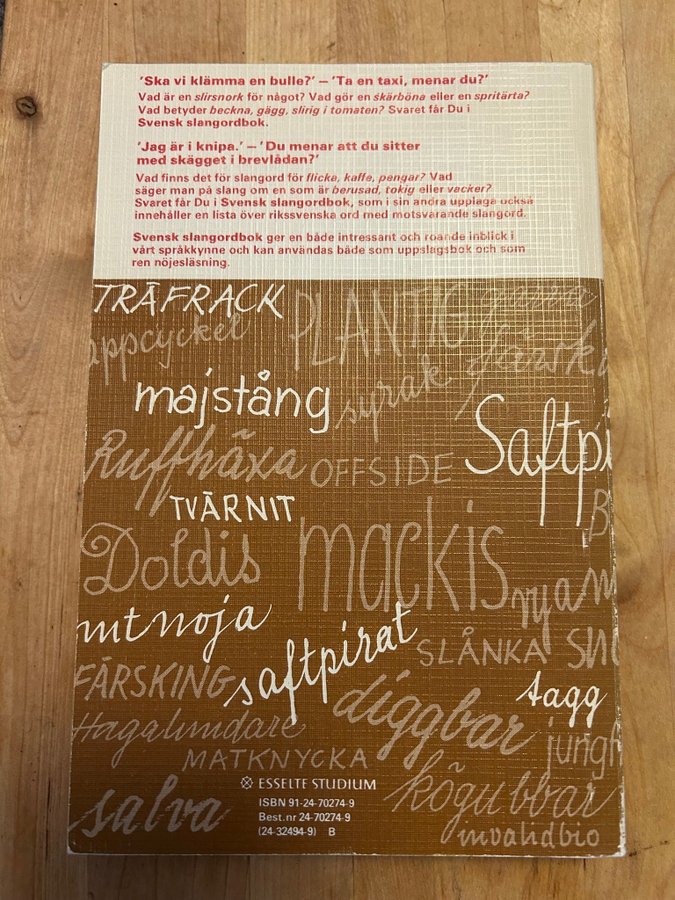 'Ska vi klämma en bulle?' – 'Ta en taxi, menar du?'
Vad är en slirsnork för något? Vad gör en skärböna eller en spritärta?
Vad betyder beckna, gägg, slirig i tomaten? Svaret får Du i
Svensk slangordbok.
'Jag är i knipa.' – 'Du menar att du sitter
med skägget i brevlådan?'
Vad finns det för slangord för flicka, kaffe, pengar? Vad
säger man på slang om en som är berusad, tokig eller vacker?
Svaret får Du i Svensk slangordbok, som i sin andra upplaga också
innehåller en lista över rikssvenska ord med motsvarande slangord.
Svensk slangordbok ger en både intressant och roande inblick i
vårt språkkynne och kan användas både som uppslagsbok och som
ren nöjesläsning.
TRÄFRACK
PLANTIG
appcyckel
färsk
majstång
syrak
Saftpi
Ruffhäxa
OFFSIDE
TVÄRNIT
B
Doldis
mackis
rya
mtnoja
saftpirat
SLÅNKA
FÄRSKING
diggbar
tagg
Hagalundare
jungf
MATKNYCKA
ESSELTE STUDIUM
kögubbar
ISBN 91-24-70274-9
Best.nr 24-70274-9
(24-32494-9) B
salva
invalidbio